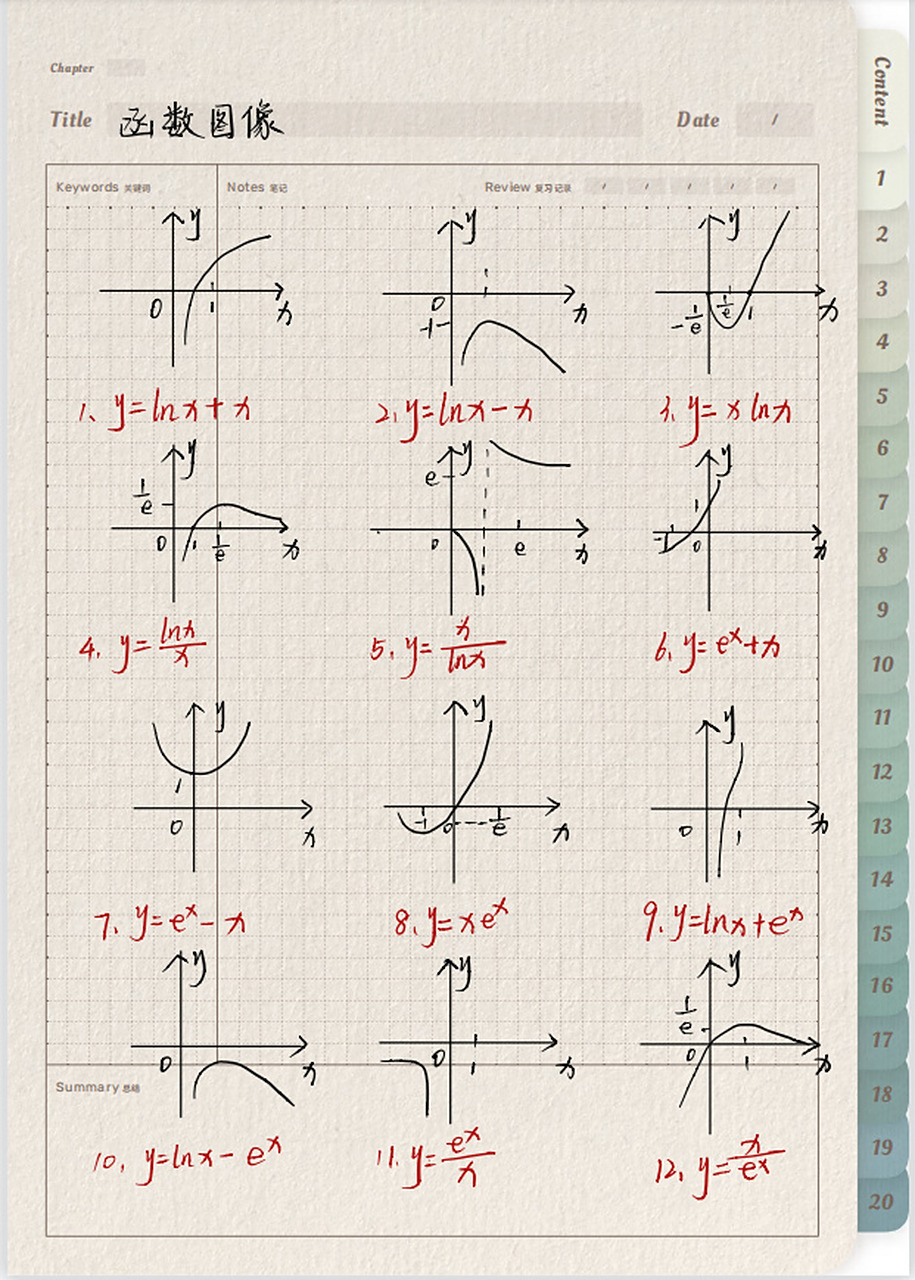 Chapter
Title 函数图像 Date /
Content
Keywords 关键词 Notes 笔记 Review 复习记录 / / / / /
y 0 1 x
y 0 -1 x
y -1/e 1/e 1 x
1、y=lnx+x
2、y=lnx-x
3、y=x lnx
y 1/e 0 1 1/e x
y e 0 e x
y 1 -1 0 x
4、y=lnx/x
5、y=x/lnx
6、y=e^x+x
y 1 0 x
y -1 0 -1/e x
y 0 1 x
7、y=e^x-x
8、y=xe^x
9、y=lnx+e^x
y 0 x
y 0 1 x
y 1/e 0 1 x
Summary 总结
10、y=lnx-e^x
11、y=e^x/x
12、y=x/e^x
1
2
3
4
5
6
7
8
9
10
11
12
13
14
15
16
17
18
19
20